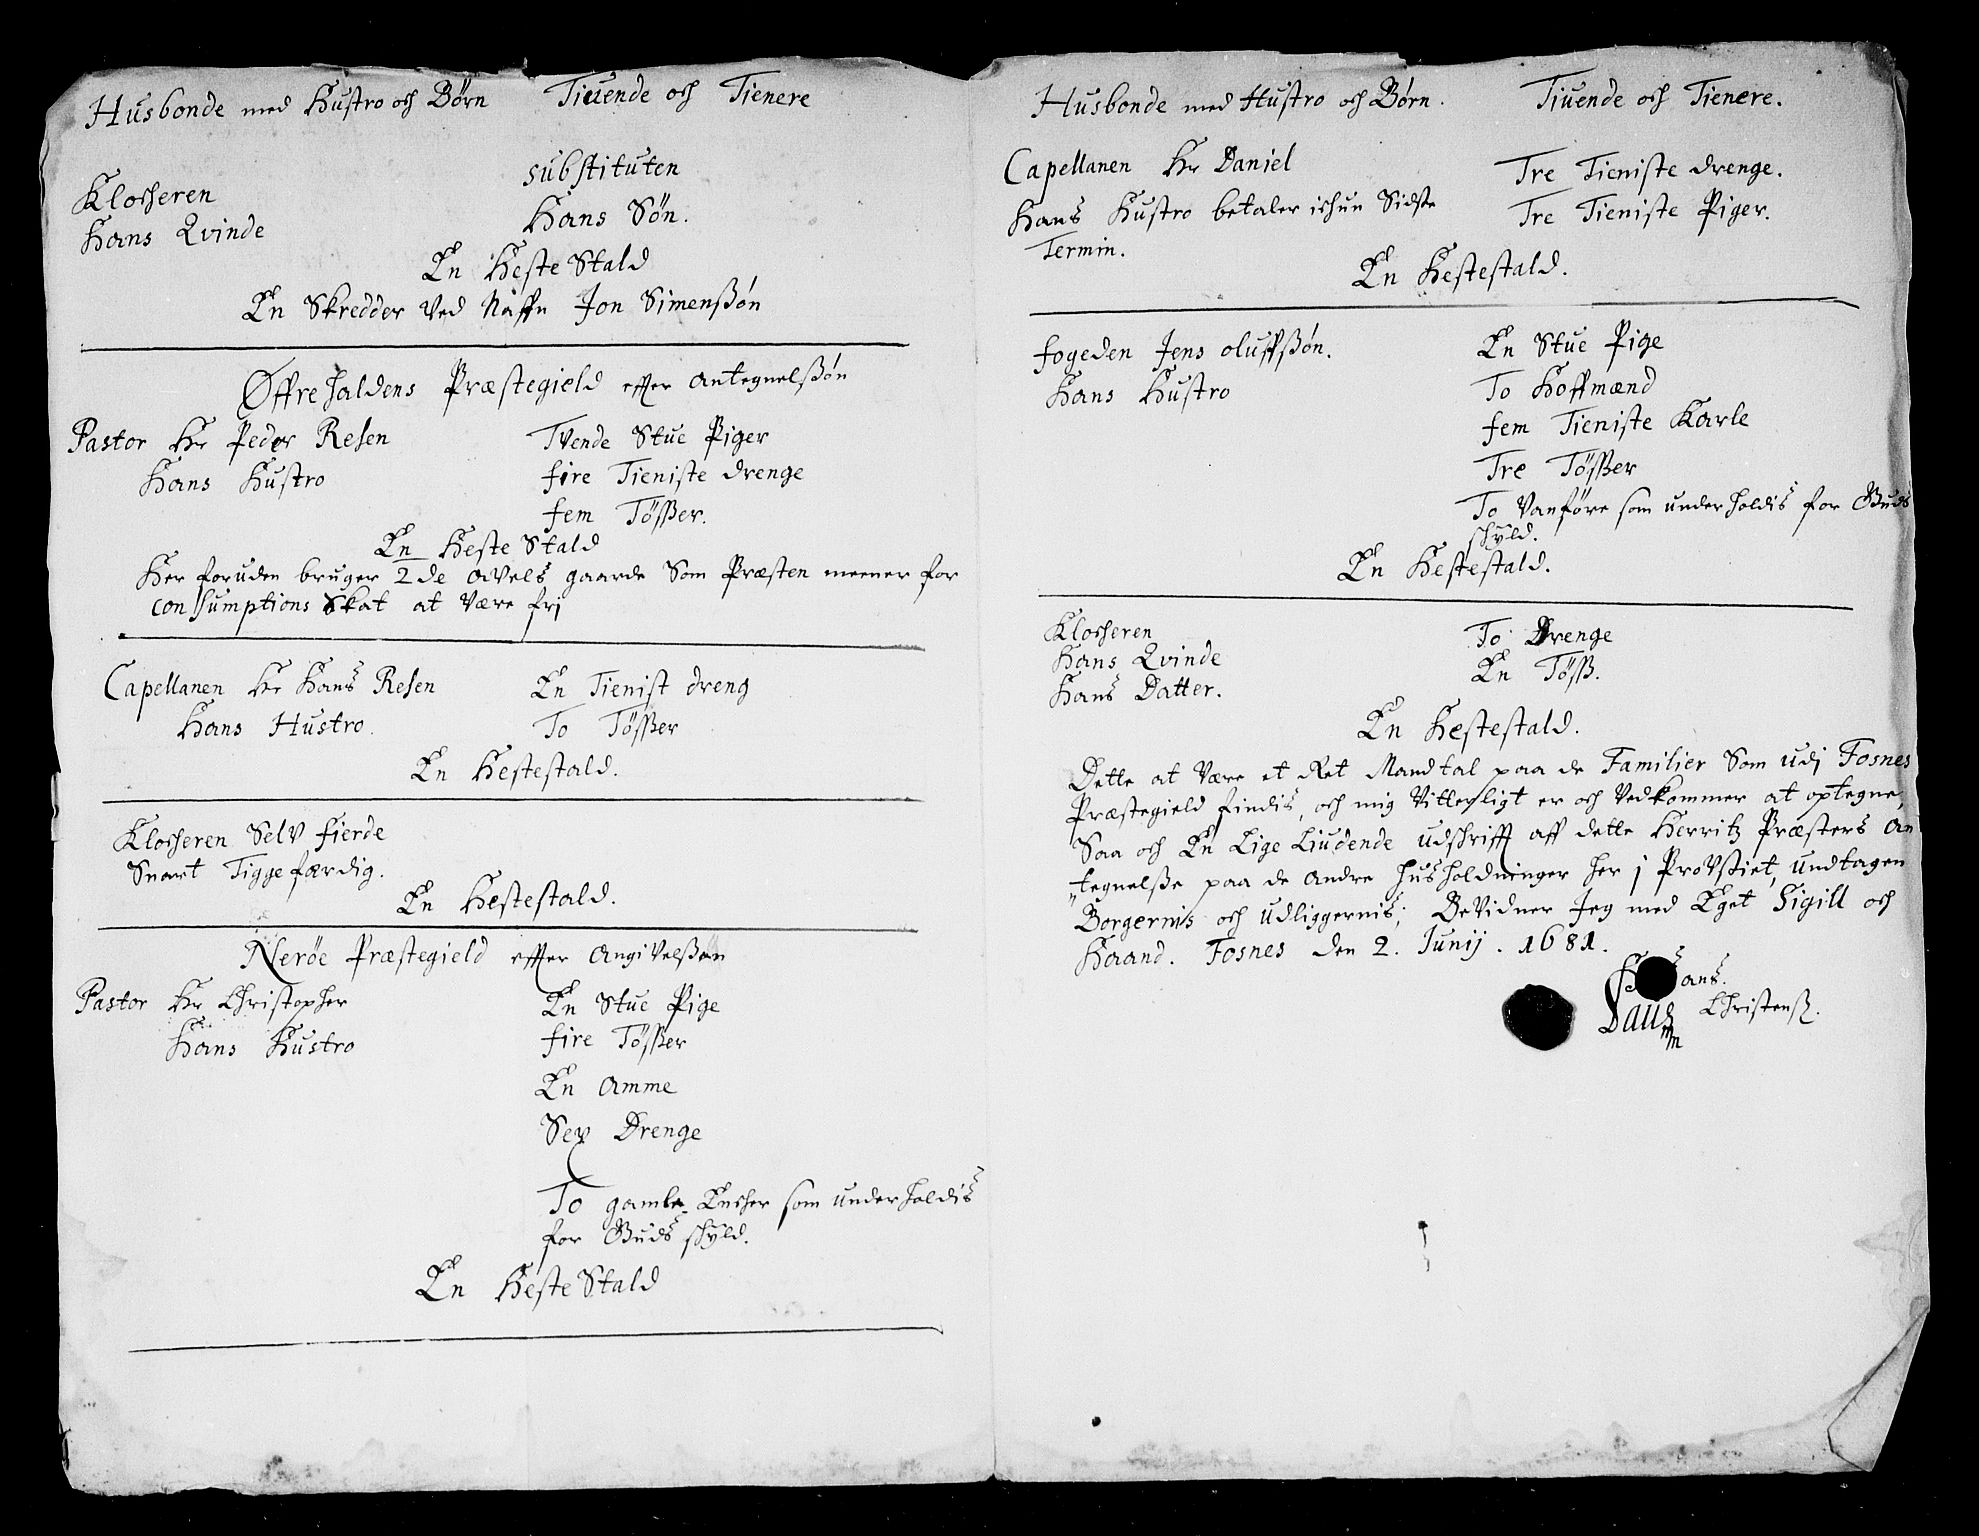 Husbonde med Hustro och Børn   Tiuende och Tienere
Klocheren   substituten
Hans Qvinde   Hans Søn.
En Heste Stald
En Skredder Ved Naffn Jon Simenßøn
Offrehaldens Præstegield effter Antegnelßøn
Pastor Hr Peder Resen   Tvende Stue Piger
Hans Hustro   fire Tieniste drenge
fem Tösßer.
En Heste Stald
Her foruden bruger 2de Avels gaarde Som Præsten meener for
Consumptions Skat at Være frj
Capellanen Hr Hans Resen   En Tienist dreng
Hans Hustro.   To Tösßer
En Hestestald.
Klocheren Selv fierde
Snart Tiggefærdig.
En Hestestald.
Neröe Præstegield effter Angivelßen
Pastor Hr Christopher   En Stue Pige
Hans Hustro   fire Tösßer
En Amme
Sex Drenge
To gamle Encher som underholdis
for Guds schyld.
En Heste Stald
Husbonde med Hustro och Børn.   Tiuende och Tienere.
Capellanen Hr Daniel   Tre Tieniste drenge.
Hans Hustro betaler ichun Sidste   Tre Tieniste Piger.
Termin.
En Hestestald.
fogeden Jens olufsßøn.   En Stue Pige
Hans Hustro   To Hoffmænd
fem Tieniste Karle
Tre Tösßer
To Vanföre som underholdis for Guds
schyld.
En Hestestald.
Klocheren   To Drenge
Hans Qvinde   En Töß.
Hans Datter.
En Hestestald.
Dette at Være et Ret Mandtal paa de Familier Som udj Fosnes
Præstegield findis, och mig Vitterligt er och Vedkommer at optegne,
Saa och En Lige Liudende udschrifft aff dette Herritz Præsters An
tegnelße paa de Andre husholdninger her j Provstiet, undtagen
Borgernis och udliggernis; BeVidner Jeg med Eget Sigill och
Haand. Fosnes den 2. Junij. 1681.
ans.
Christenß.